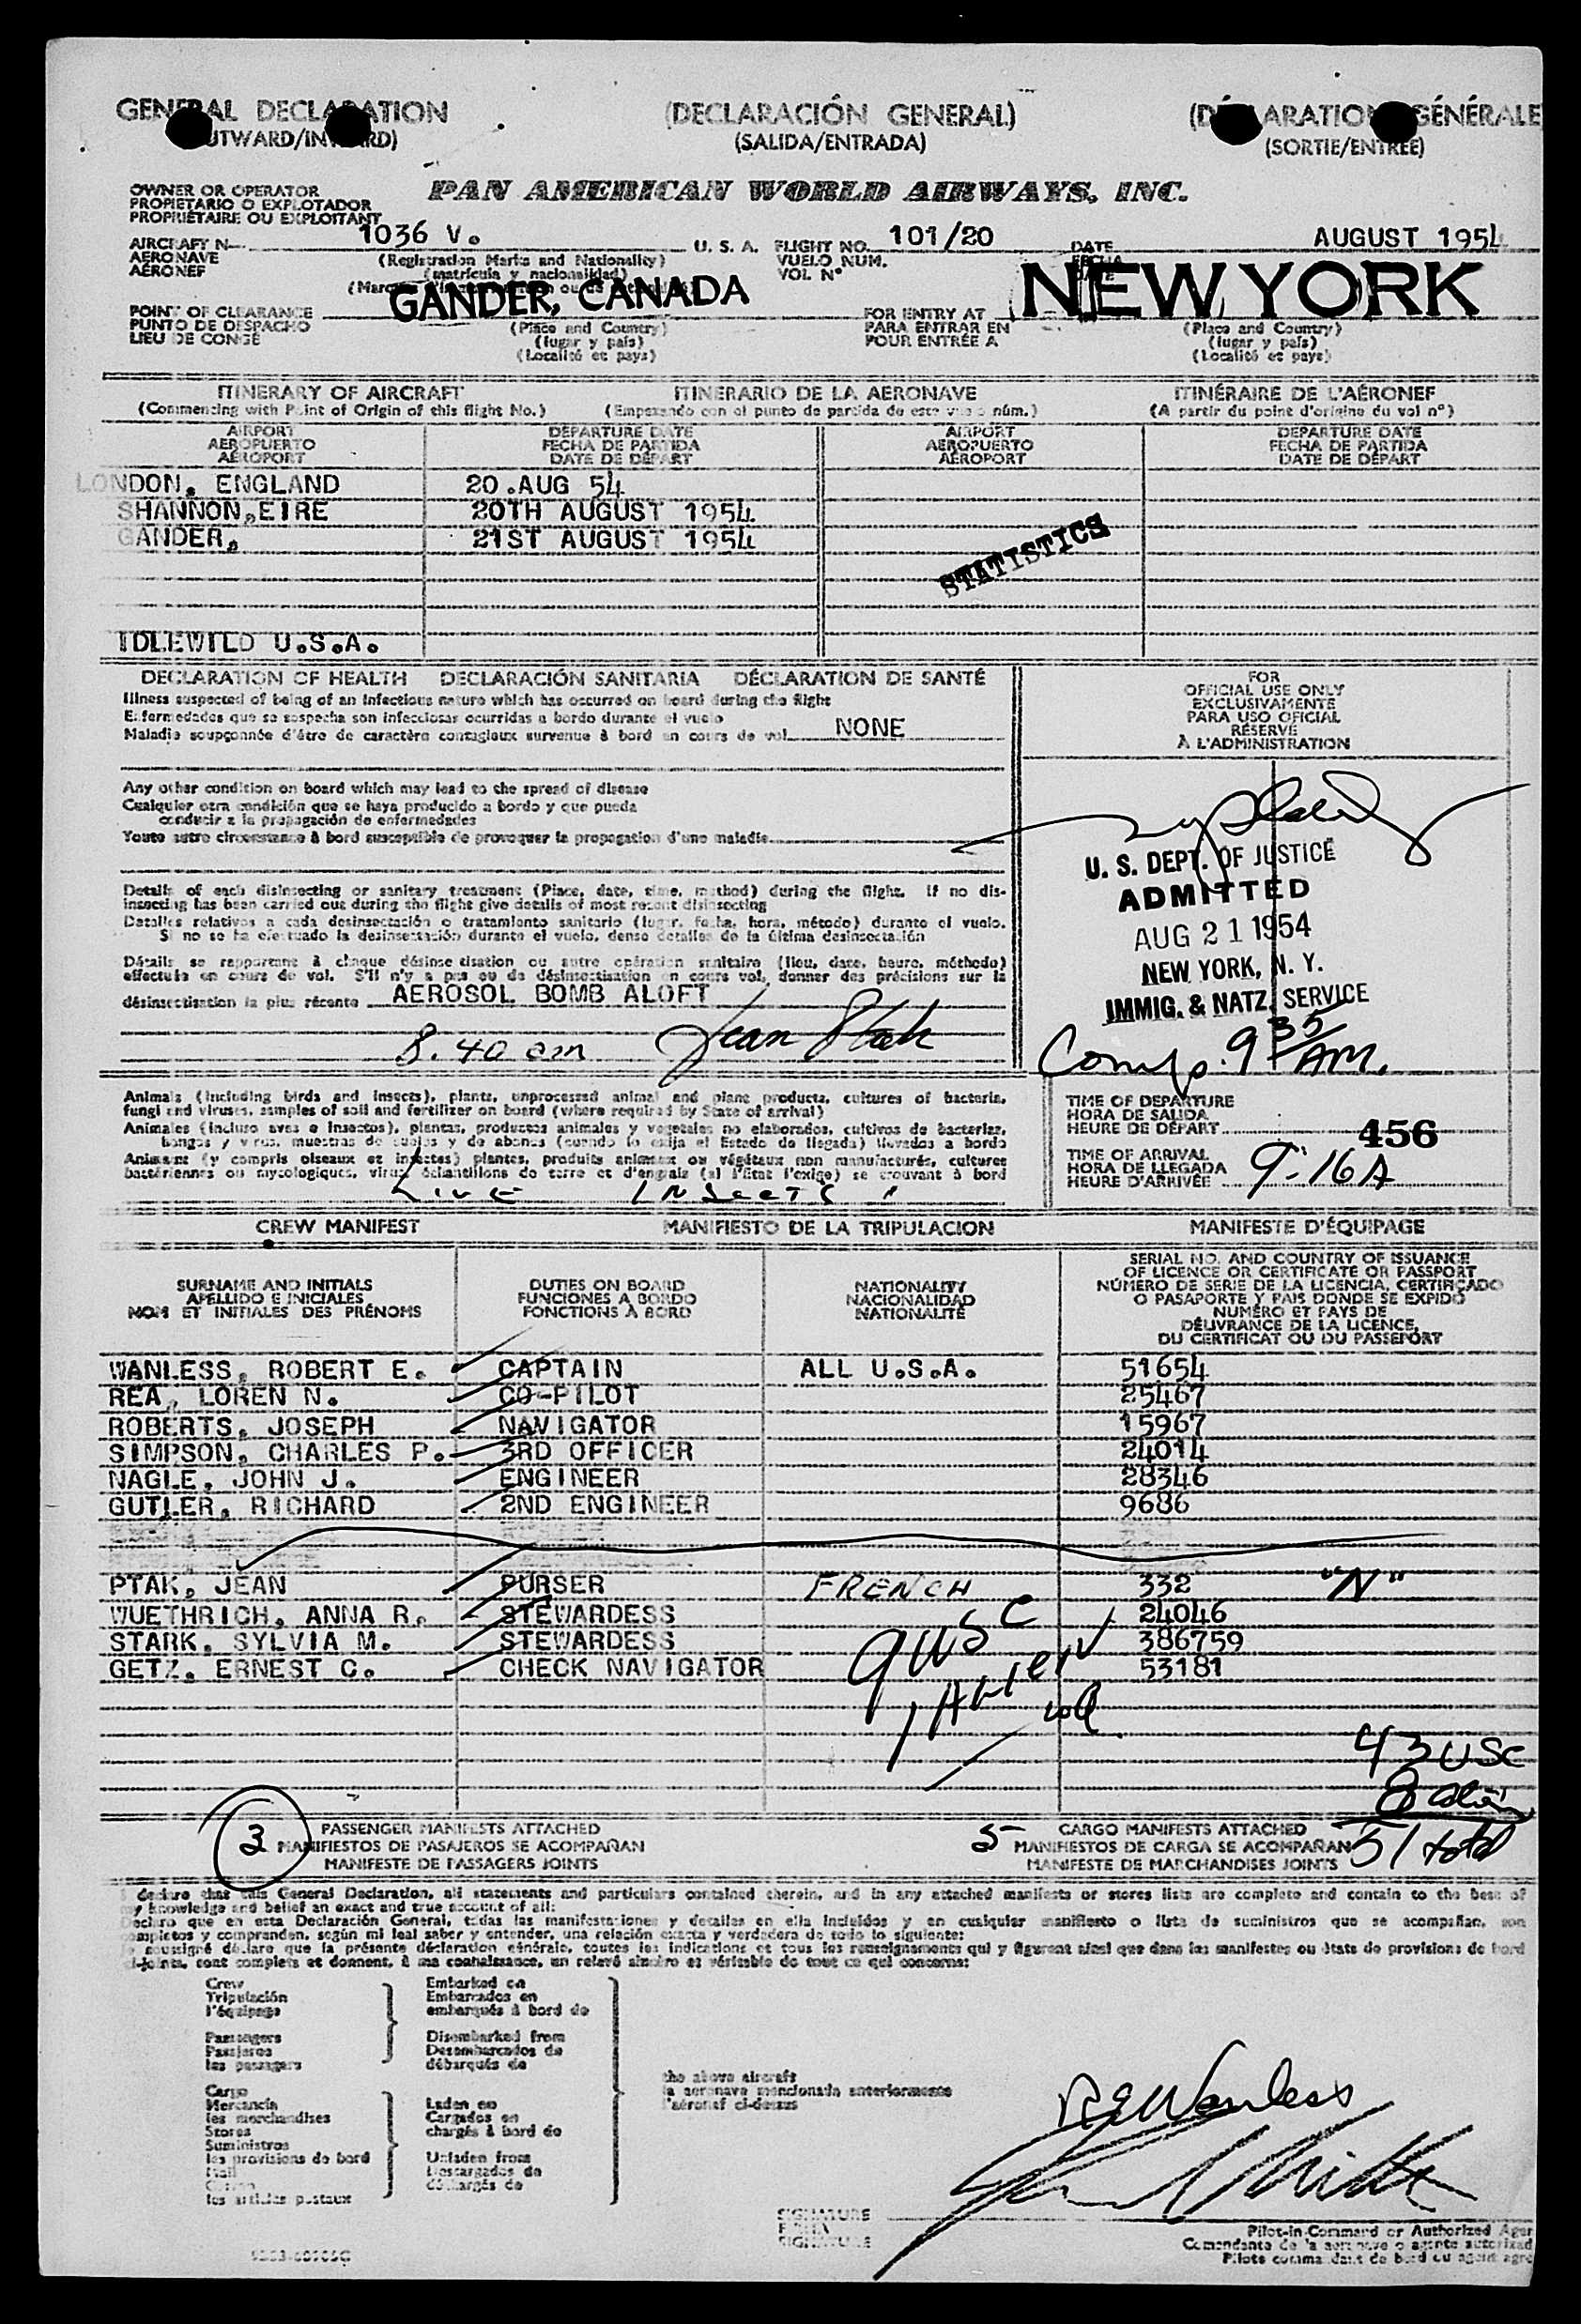 GENERAL DECLARATION (DECLARACIÓN GENERAL) (DÉCLARATION GÉNÉRALE)
(OUTWARD/INWARD) (SALIDA/ENTRADA) (SORTIE/ENTRÉE)
OWNER OR OPERATOR
PROPIETARIO O EXPLOTADOR
PROPRIÉTAIRE OU EXPLOITANT
PAN AMERICAN WORLD AIRWAYS, INC.
AIRCRAFT N
AERONAVE
AÉRONEF
1036 V.
U. S. A.
(Registration Marks and Nationality)
(matrícula y nacionalidad)
FLIGHT NO. 101/20
VUELO NUM.
VOL Nº
DATE
FECHA
DATE
AUGUST 1954
POINT OF CLEARANCE
PUNTO DE DESPACHO
LIEU DE CONGÉ
GANDER, CANADA
(Place and Country)
(lugar y país)
(Localité et pays)
FOR ENTRY AT
PARA ENTRAR EN
POUR ENTRÉE A
NEW YORK
(Place and Country)
(lugar y país)
(Localité et pays)
ITINERARY OF AIRCRAFT ITINERARIO DE LA AERONAVE ITINÉRAIRE DE L'AÉRONEF
(Commencing with Point of Origin of this flight No.) (Empezando con el punto de partida de este vuelo núm.) (A partir du point d'origine du vol nº)
AIRPORT DEPARTURE DATE AIRPORT DEPARTURE DATE
AEROPUERTO FECHA DE PARTIDA AEROPUERTO FECHA DE PARTIDA
AÉROPORT DATE DE DÉPART AÉROPORT DATE DE DÉPART
LONDON, ENGLAND 20.AUG 54
SHANNON,EIRE 20TH AUGUST 1954
GANDER, 21ST AUGUST 1954
STATISTICS
IDLEWILD U.S.A.
DECLARATION OF HEALTH DECLARACIÓN SANITARIA DÉCLARATION DE SANTÉ
Illness suspected of being of an infectious nature which has occurred on board during the flight
Enfermedades que se sospecha son infecciosas ocurridas a bordo durante el vuelo
Maladie soupçonnée d'être de caractère contagieux survenue à bord en cours de vol NONE
Any other condition on board which may lead to the spread of disease
Cualquier otra condición que se haya producido a bordo y que pueda
conducir a la propagación de enfermedades
Toute autre circonstance à bord susceptible de provoquer la propagation d'une maladie
Details of each disinsecting or sanitary treatment (Place, date, time, method) during the flight. If no dis-
insecting has been carried out during the flight give details of most recent disinsecting
Detalles relativos a cada desinsectación o tratamiento sanitario (lugar, fecha, hora, método) durante el vuelo.
Si no se ha efectuado la desinsectación durante el vuelo, dense detalles de la última desinsectación
Détails se rapportant à chaque désinsectisation ou autre opération sanitaire (lieu, date, heure, méthode)
effectuée en cours de vol. S'il n'y a pas eu de désinsectisation en cours vol, donner des précisions sur la
désinsectisation la plus récente AEROSOL BOMB ALOFT
8.40 am Jean Ptak
FOR
OFFICIAL USE ONLY
EXCLUSIVAMENTE
PARA USO OFICIAL
RÉSERVÉ
À L'ADMINISTRATION
U. S. DEPT. OF JUSTICE
ADMITTED
AUG 21 1954
NEW YORK, N. Y.
IMMIG. & NATZ. SERVICE
Comp. 9 35 AM.
Animals (including birds and insects), plants, unprocessed animal and plane products, cultures of bacteria,
fungi and viruses, samples of soil and fertilizer on board (where required by State of arrival)
Animales (incluso aves e insectos), plantas, productos animales y vegetales no elaborados, cultivos de bacterias,
hongos y virus, muestras de suelos y de abonos (cuando lo exija el Estado de llegada) llevados a bordo
Animaux (y compris oiseaux et insectes) plantes, produits animaux ou végétaux non manufacturés, cultures
bactériennes ou mycologiques, virus, échantillons de terre et d'engrais (si l'État l'exige) se trouvant à bord
LIVE INSECTS
TIME OF DEPARTURE
HORA DE SALIDA
HEURE DE DÉPART
456
TIME OF ARRIVAL
HORA DE LLEGADA
HEURE D'ARRIVÉE
9:16A
CREW MANIFEST MANIFIESTO DE LA TRIPULACION MANIFESTE D'ÉQUIPAGE
SURNAME AND INITIALS
APELLIDO E INICIALES
NOM ET INITIALES DES PRÉNOMS
DUTIES ON BOARD
FUNCIONES A BORDO
FONCTIONS À BORD
NATIONALITY
NACIONALIDAD
NATIONALITÉ
SERIAL NO. AND COUNTRY OF ISSUANCE
OF LICENCE OR CERTIFICATE OR PASSPORT
NÚMERO DE SERIE DE LA LICENCIA, CERTIFICADO
O PASAPORTE Y PAIS DONDE SE EXPIDÓ
NUMÉRO ET PAYS DE
DÉLIVRANCE DE LA LICENCE,
DU CERTIFICAT OU DU PASSEPORT
WANLESS, ROBERT E. CAPTAIN ALL U.S.A. 51654
REA, LOREN N. CO-PILOT 25467
ROBERTS, JOSEPH NAVIGATOR 15967
SIMPSON, CHARLES P. 3RD OFFICER 24014
NAGLE, JOHN J. ENGINEER 28346
GUTLER, RICHARD 2ND ENGINEER 9686
PTAK, JEAN PURSER FRENCH 332 "N"
WUETHRICH, ANNA R. STEWARDESS 24046
STARK, SYLVIA M. STEWARDESS 386759
GETZ, ERNEST C. CHECK NAVIGATOR 53181
9 USC
1 Alien
43 USC
8 alien
51 total
3 PASSENGER MANIFESTS ATTACHED
MANIFIESTOS DE PASAJEROS SE ACOMPAÑAN
MANIFESTE DE PASSAGERS JOINTS
5 CARGO MANIFESTS ATTACHED
MANIFIESTOS DE CARGA SE ACOMPAÑAN
MANIFESTE DE MARCHANDISES JOINTS
I declare that this General Declaration, all statements and particulars contained therein, and in any attached manifests or stores lists are complete and contain to the best of
my knowledge and belief an exact and true account of all:
Declaro que en esta Declaración General, todas las manifestaciones y detalles en ella incluídos y en cualquier manifiesto o lista de suministros que se acompañan, son
completos y comprenden, según mi leal saber y entender, una relación exacta y verdadera de todo lo siguiente:
Je soussigné déclare que la présente déclaration générale, toutes les indications et tous les renseignements qui y figurent ainsi que dans les manifestes ou états de provisions de bord
ci-joints, sont complets et donnent, à ma connaissance, un relevé sincère et véritable de tout ce qui concerne:
Crew
Tripulación
l'équipage
Passengers
Pasajeros
les passagers
Cargo
Mercancía
les marchandises
Stores
Suministros
les provisions de bord
Mail
les articles postaux
Embarked on
Embarcados en
embarqués à bord de
Disembarked from
Desembarcados de
débarqués de
Laden on
Cargados en
chargés à bord de
Unladen from
Descargados de
déchargés de
the above aircraft
la aeronave mencionada anteriormente
l'aéronef ci-dessus
R E Wanless
SIGNATURE
FIRMA
SIGNATURE
Pilot-in-Command or Authorized Agen
Comandante de la aeronave o agente autorizad
Pilote commandant de bord ou agent agré